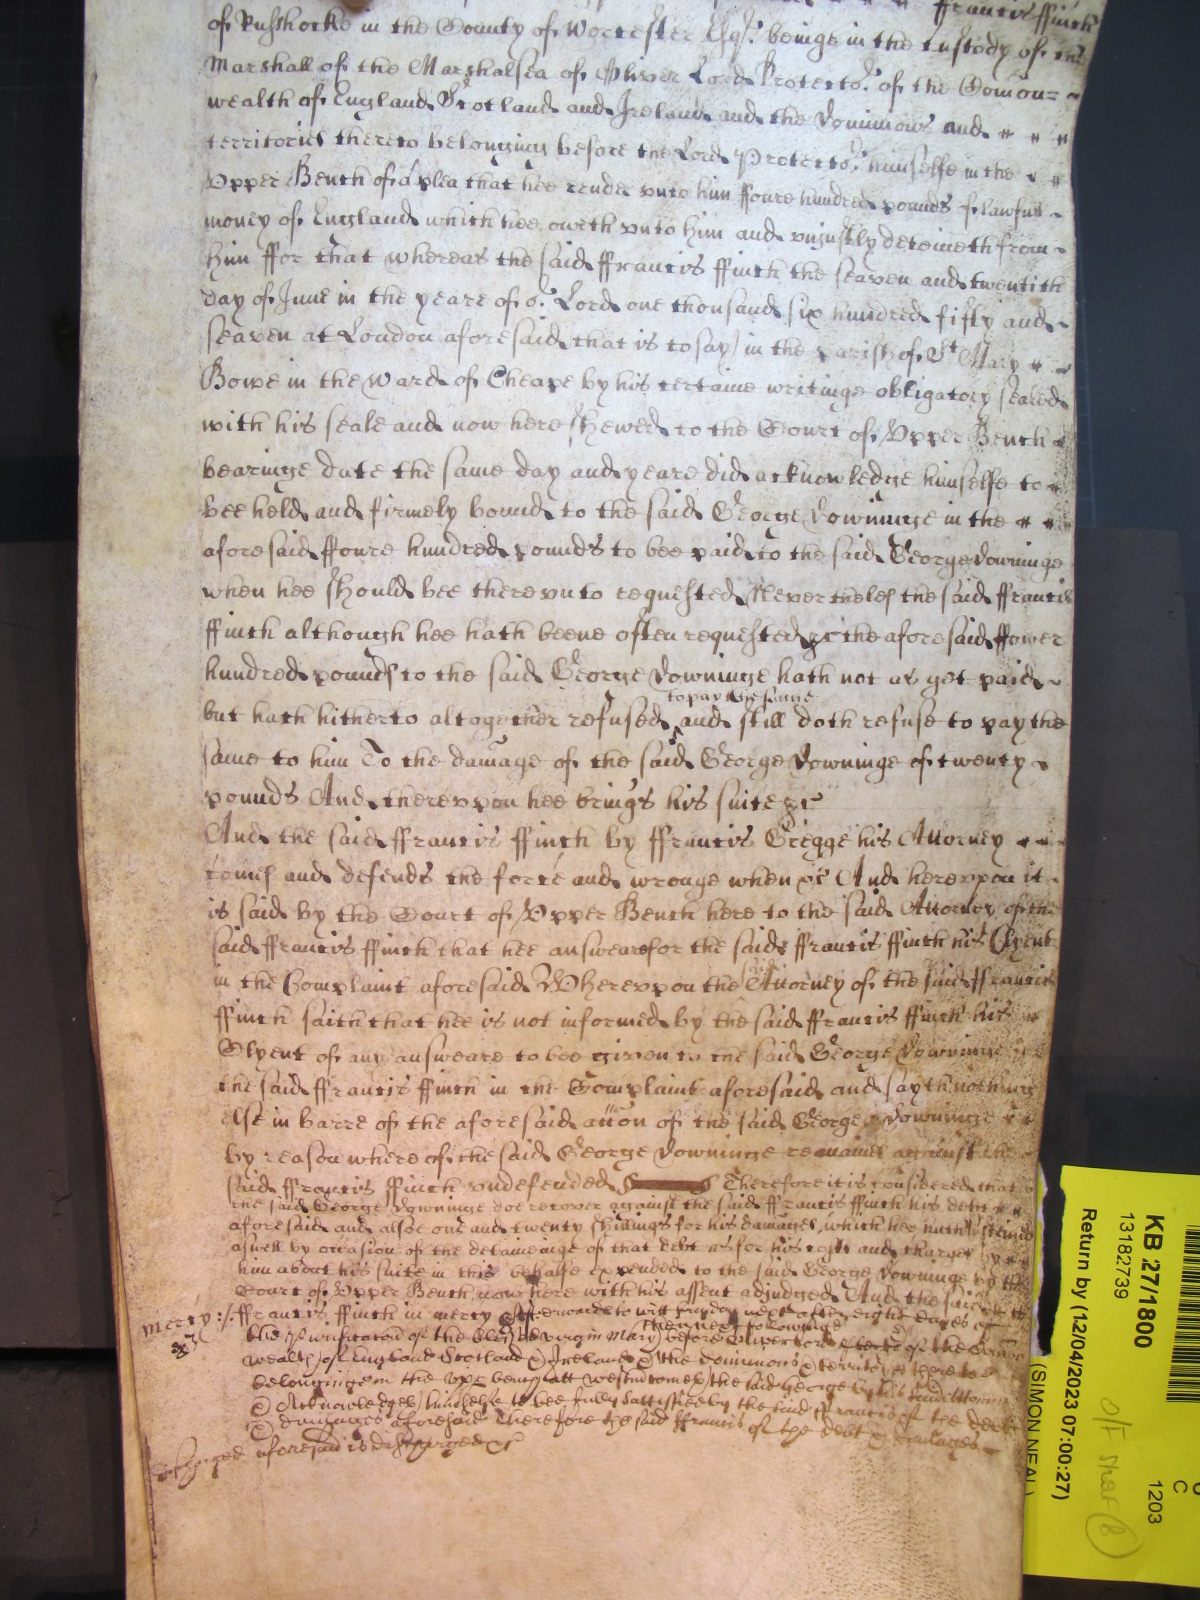 ffrancis ffinch
of Rushocke in the County of Worcester Esqr. beinge in the custody of the
Marshall of the Marshalsea of Oliver Lord Protector. of the Comon=
wealth of England Scotland and Ireland and the Dominions and
territories thereto belonging before the Lord Protector. himselfe in the
Upper Bench of a plea that hee render unto him ffoure hundred pounds of lawfull
money of England which hee oweth unto him and uniustly deteineth from
him ffor that whereas the said ffrancis ffinch the seaven and twentith
day of June in the yeare of or. Lord one thousand six hundred fifty and
seaven at London aforesaid that is to say in the parish of St Mary
Bowe in the Ward of Cheape by his certaine writinge obligatory sealed
with his seale and now here shewed to the Court of Upper Bench
bearinge date the same day and yeare did acknowledge himselfe to
bee held and firmely bound to the said George Downinge in the
aforesaid ffoure hundred pounds to bee paid to the said George Downinge
when hee should bee thereunto requested Neverthelesse the said ffrancis
ffinch although hee hath beene often requested &c the aforesaid ffower
hundred pounds to the said George Downinge hath not as yet paid
to pay the same
but hath hitherto altogether refused and still doth refuse to pay the
same to him To the damage of the said George Downinge of twenty
pounds And thereupon hee brings his suite &c
And the said ffrancis ffinch by ffrancis Gregge his Attorney
comes and defends the force and wronge when &c And hereupon it
is said by the Court of Upper Bench here to the said Attorney of the
said ffrancis ffinch that hee answeare for the said ffrancis ffinch his Clyent
in the Complaint aforesaid Whereupon the Attorney of the said ffrancis
ffinch saith that hee is not informed by the said ffrancis ffinch his
Clyent of any answeare to bee given to the said George Downinge
the said ffrancis ffinch in the Complaint aforesaid and sayth nothing
else in barre of the aforesaid accon of the said George Downinge
by reason whereof the said George Downinge remaines against the
said ffrancis ffinch undefended Therefore it is considered that
the said George Downinge doe recover against the said ffrancis ffinch his debt
aforesaid and alsoe one and twenty shillings for his damages which hee hath susteined
aswell by occasion of the deteininge of that debt as for his costs and charges by
him about his suite in this behalfe expended to the said George Downinge by the
Court of Upper Bench now here with his assent adjudged And the said
mercy ffrancis ffinch in mercy &c Afterwards to witt fryday next after eight dayes of
then next followinge
the Purificacon of the blessed virgin Mary before Oliver Lord Protector of the Comon
wealth of England Scotland & Ireland & the dominions & territories thereto
belonginge in the upper bench att westm comes the said George by his said Attorney
& Acknowledgeth himselfe to bee fully sattisfied by the said ffrancis of the debt
& damages aforesaid Therefore the said ffrancis of the debt & damages
discharged aforesaid is discharged &c
KB 27/1800
13182739
Return by (12/04/2023 07:00:27)
(SIMON NEAL)
C
1203